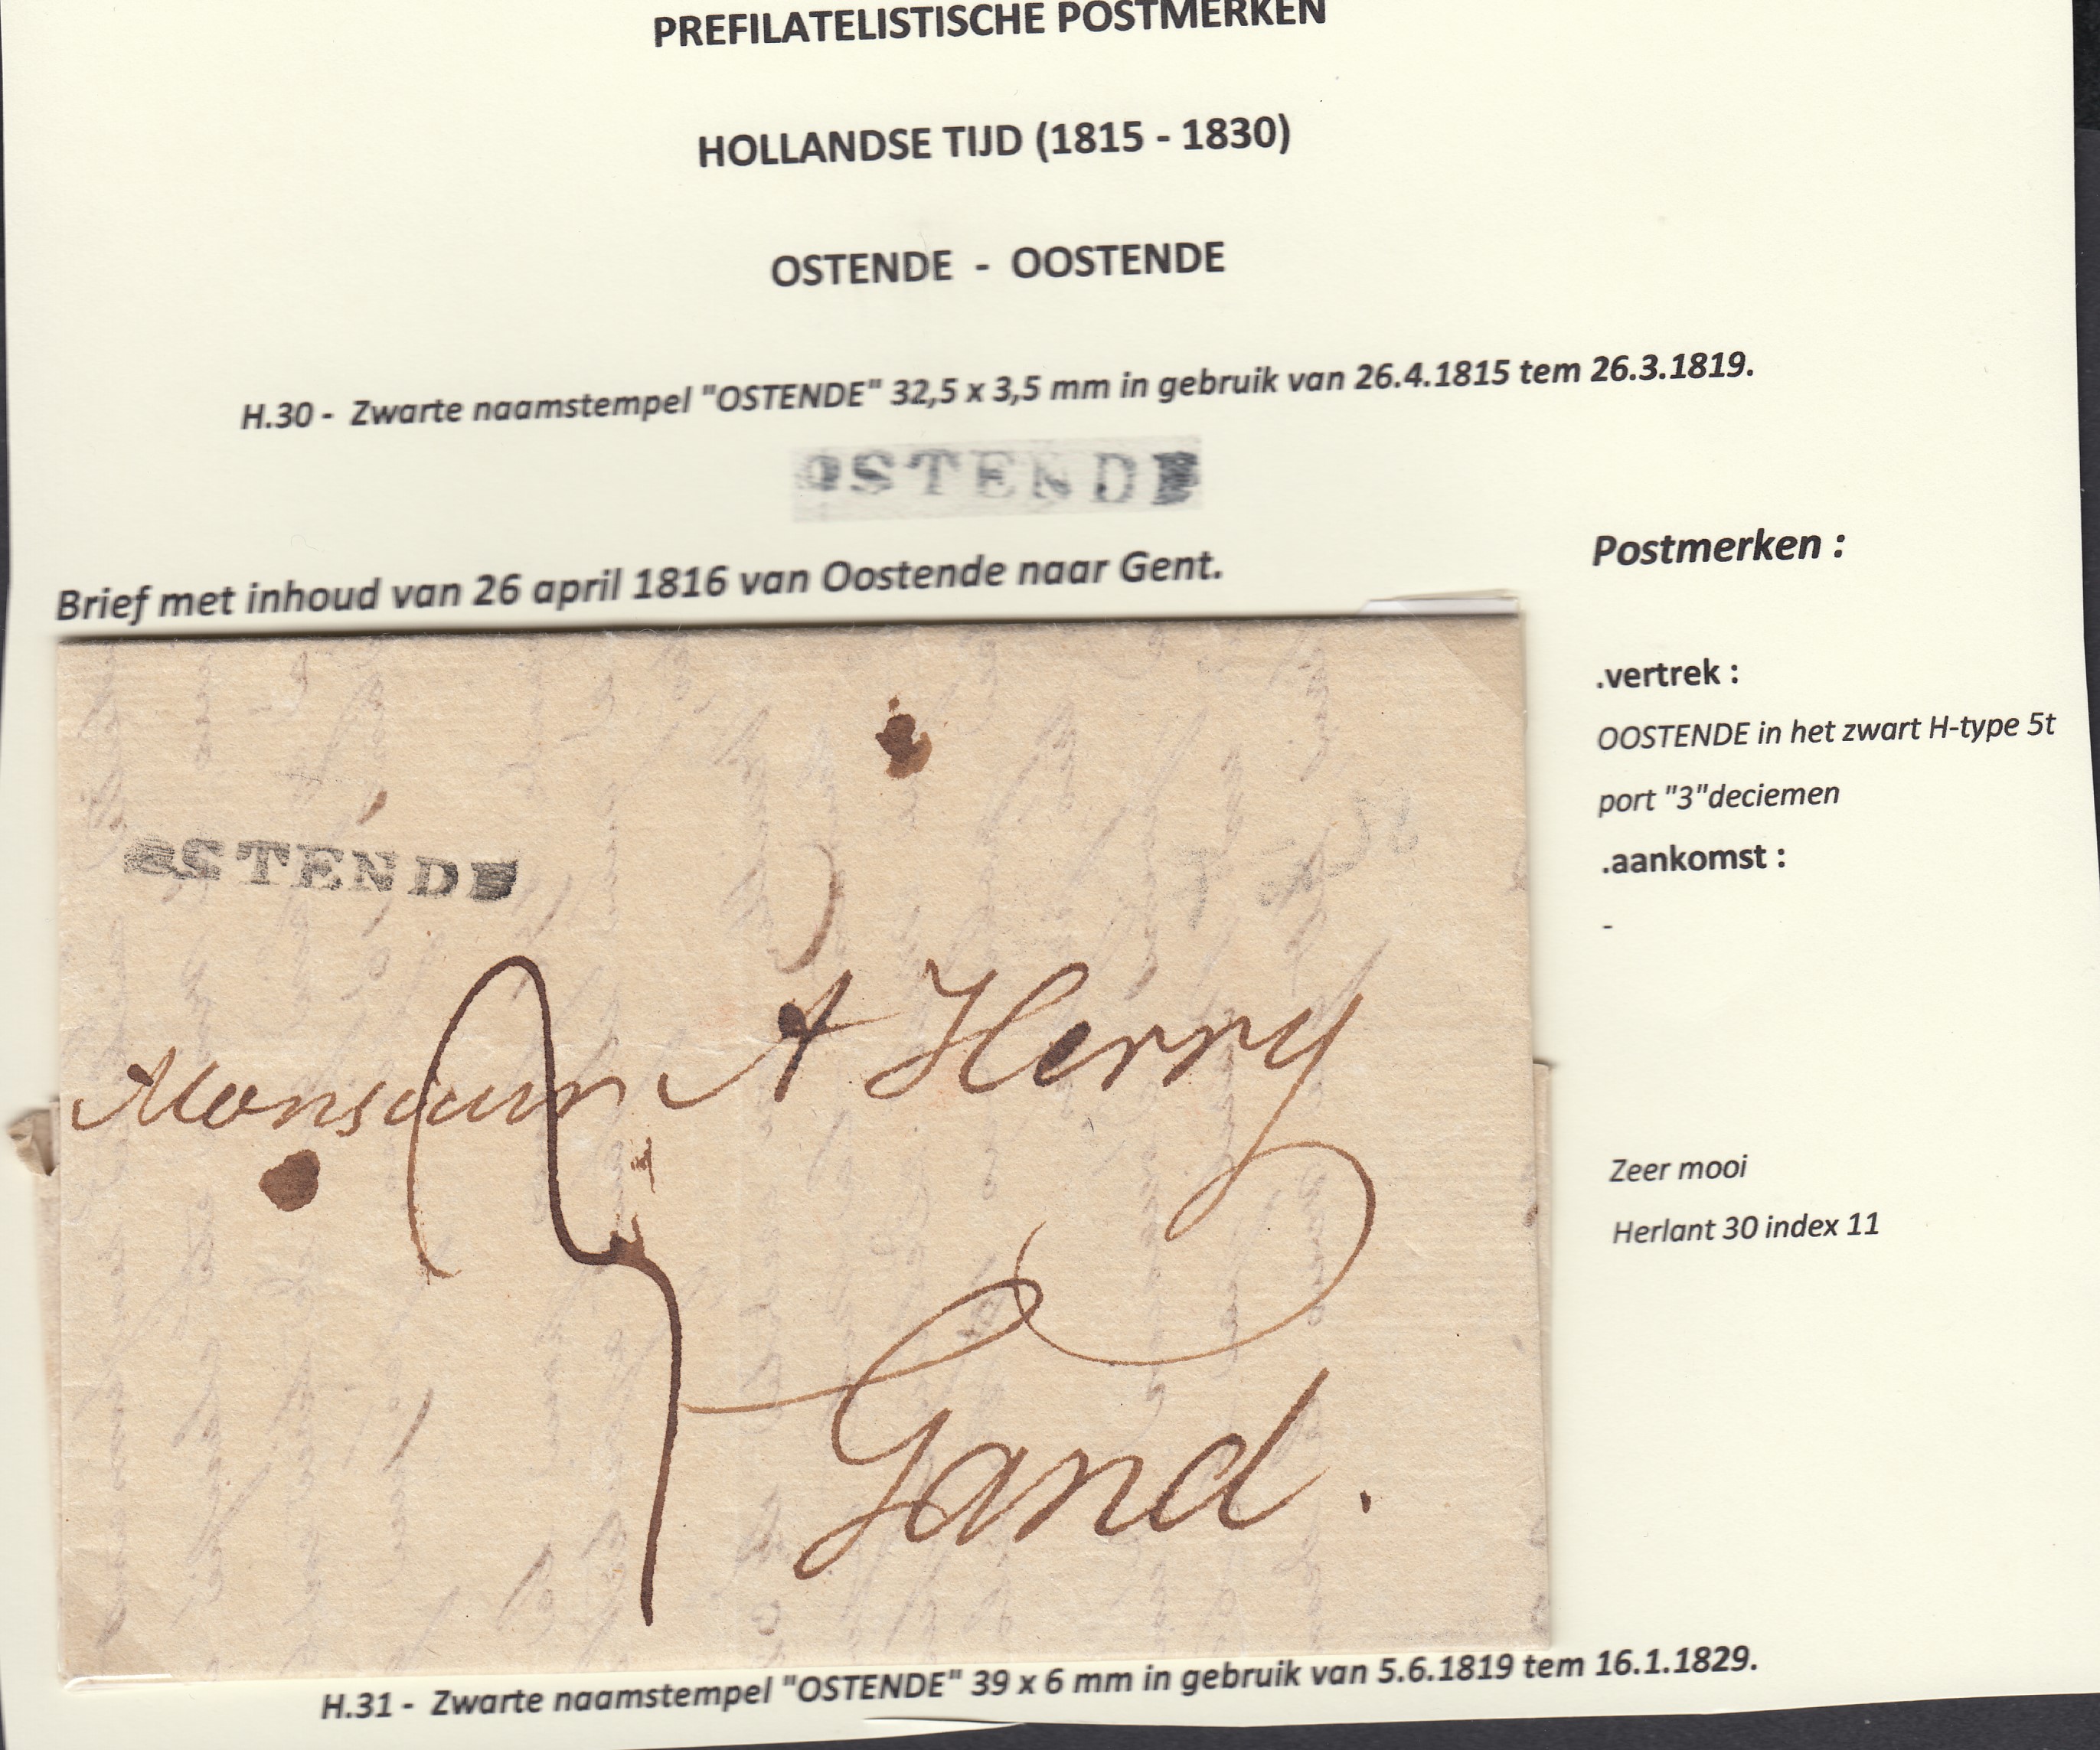 PREFILATELISTISCHE POSTMERKEN
HOLLANDSE TIJD (1815 - 1830)
OSTENDE - OOSTENDE
H.30 - Zwarte naamstempel "OSTENDE" 32,5 x 3,5 mm in gebruik van 26.4.1815 tem 26.3.1819.
OSTENDE
Brief met inhoud van 26 april 1816 van Oostende naar Gent.
OSTENDE
Monsieur A Herry
Gand.
Postmerken :
.vertrek :
OOSTENDE in het zwart H-type 5t
port "3"deciemen
.aankomst :
-
Zeer mooi
Herlant 30 index 11
H.31 - Zwarte naamstempel "OSTENDE" 39 x 6 mm in gebruik van 5.6.1819 tem 16.1.1829.